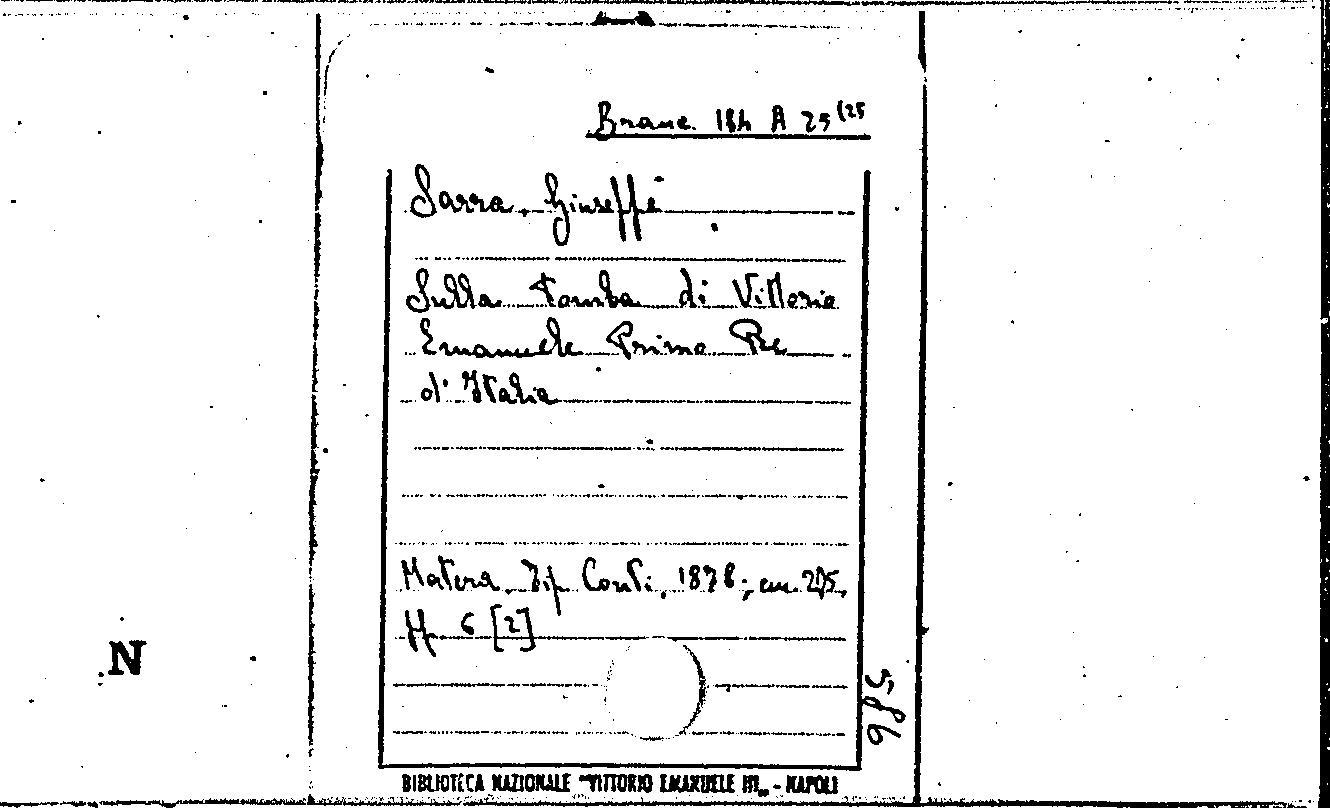 Branc. 184 A 25 (25
Sarra, Giuseppe
Sulla Tomba di Vittorio
Emanuele Primo Re
d'Italia
Matera, Tip. Conti, 1878; cm. 21,5,
pp. 6 [2]
N
BIBLIOTECA NAZIONALE "VITTORIO EMANUELE III„ - NAPOLI